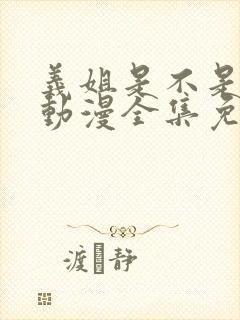 義姐是不是
動漫全集免
渡 静